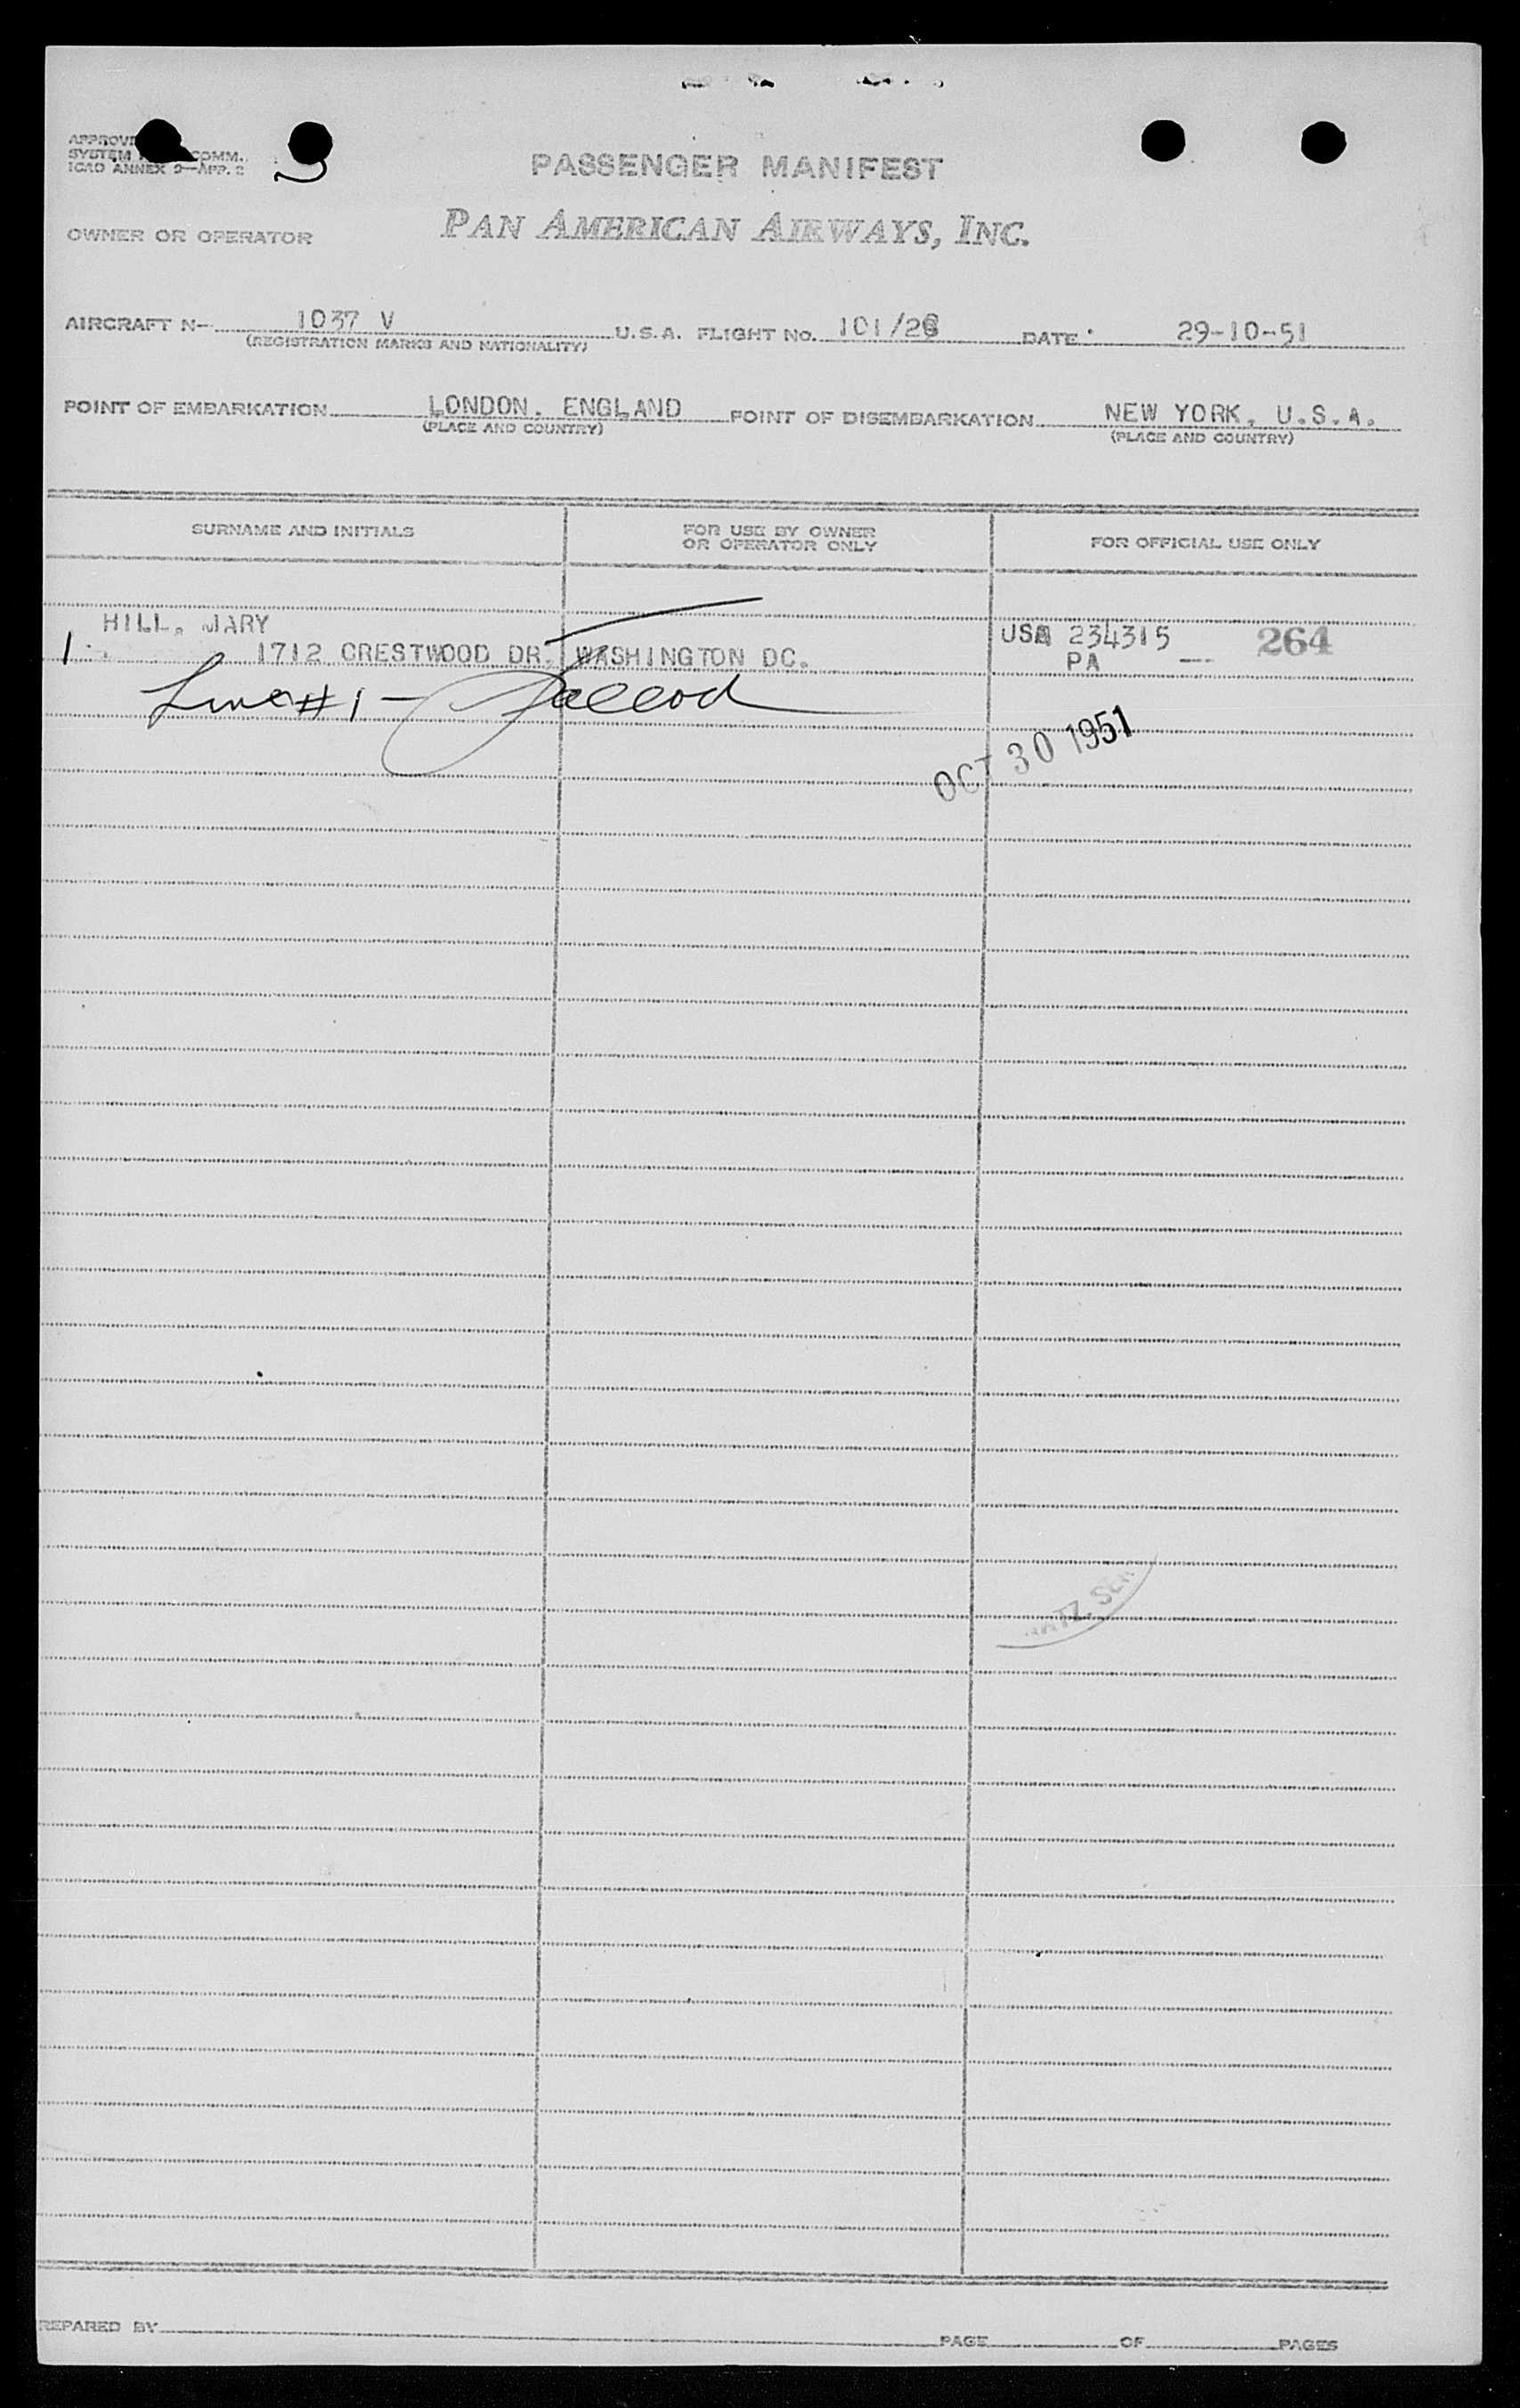 SYSTEM COMM.
ICAO ANNEX 9—APP. 2
PASSENGER MANIFEST
OWNER OR OPERATOR PAN AMERICAN AIRWAYS, INC.
AIRCRAFT N- 1037 V U.S.A. FLIGHT NO. 101/28 DATE 29-10-51
(REGISTRATION MARKS AND NATIONALITY)
POINT OF EMBARKATION LONDON. ENGLAND POINT OF DISEMBARKATION NEW YORK, U.S.A.
(PLACE AND COUNTRY) (PLACE AND COUNTRY)
SURNAME AND INITIALS FOR USE BY OWNER OR OPERATOR ONLY FOR OFFICIAL USE ONLY
HILL, MARY USA 234315 264
1 1712 CRESTWOOD DR. WASHINGTON DC. PA —
Line #1 -
OCT 30 1951
PREPARED BY PAGE OF PAGES